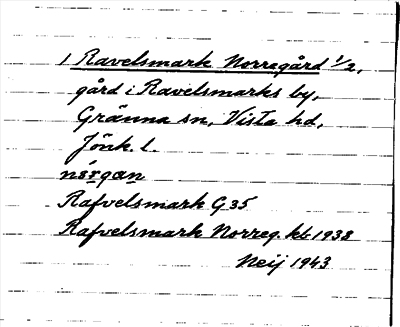 1 Ravelsmark Norregård 1/2,
gård i Ravelsmarks by,
Gränna sn, Vista hd,
Jönk. l.
nǿrgan
Rafvelsmark G 35
Rafvelsmark Norreg. kb 1938
Neij 1943